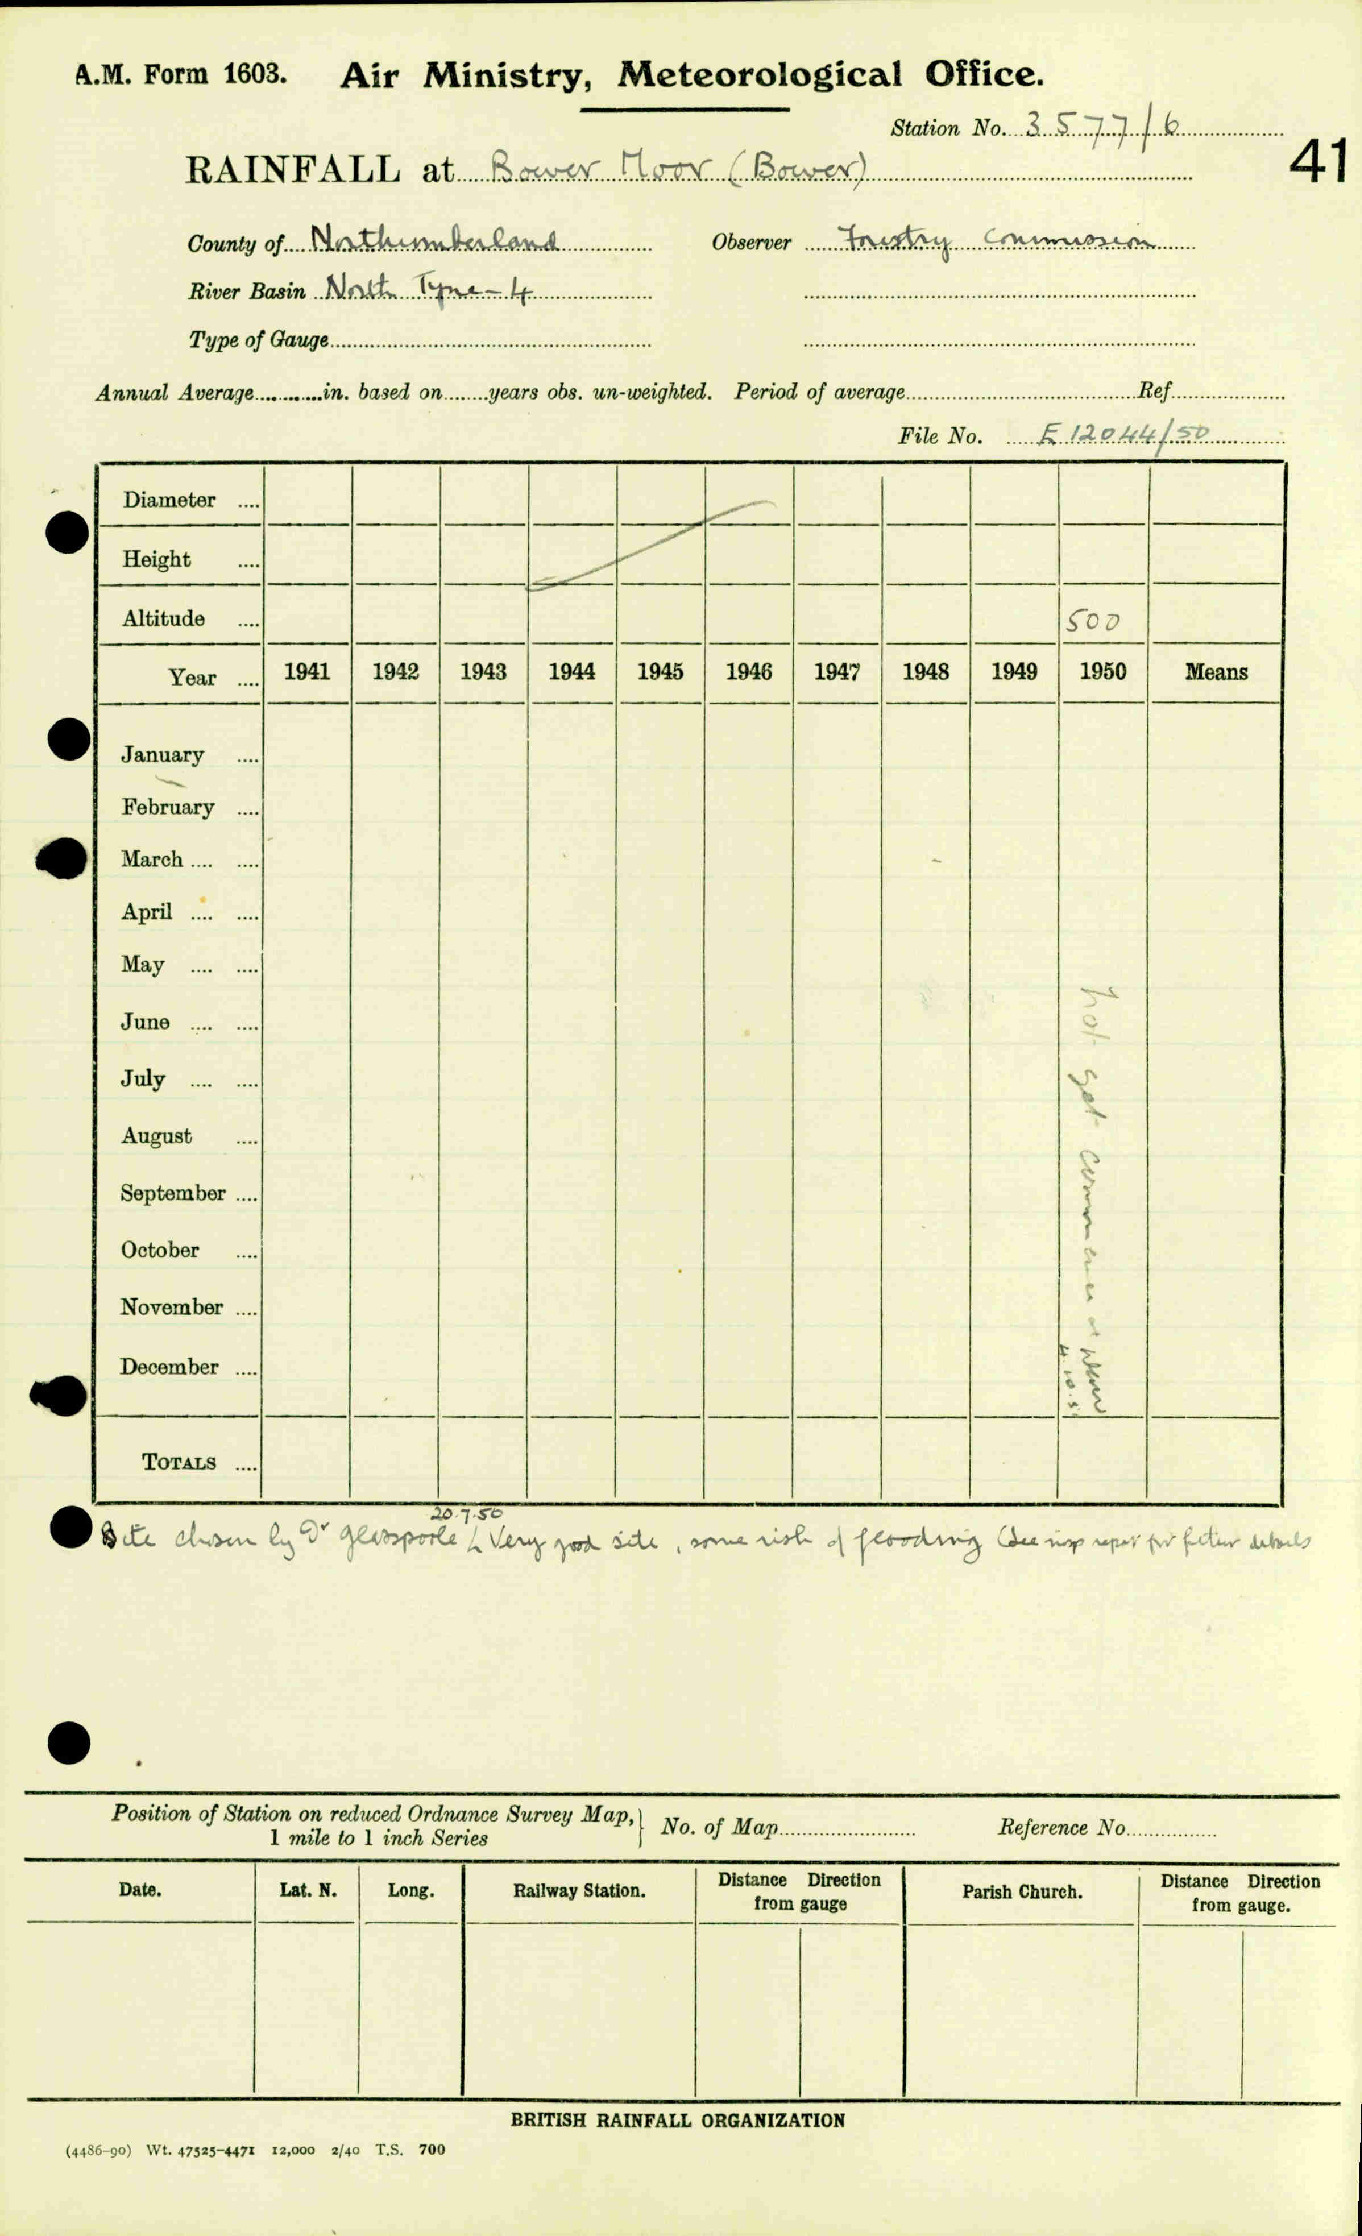 A.M. Form 1603. Air Ministry, Meteorological Office.
Station No. 3577/6
41
RAINFALL at Bower Moor (Bower)
County of Northumberland Observer Forestry Commission
River Basin North Tyne - 4
Type of Gauge
Annual Average in. based on years obs. un-weighted. Period of average Ref
File No. E 12044/50
Diameter
Height
Altitude 500
Year 1941 1942 1943 1944 1945 1946 1947 1948 1949 1950 Means
January
February
March
April
May
June
July
August
September
October
November
December
not yet commenced
TOTALS
20.7.50
Site chosen by Dr Glasspoole Very good site, some risk of flooding (See insp report for further details
Position of Station on reduced Ordnance Survey Map, No. of Map Reference No
1 mile to 1 inch Series
Date. Lat. N. Long. Railway Station. Distance Direction from gauge Parish Church. Distance Direction from gauge.
BRITISH RAINFALL ORGANIZATION
(4486-90) Wt. 47525-4471 12,000 2/40 T.S. 700